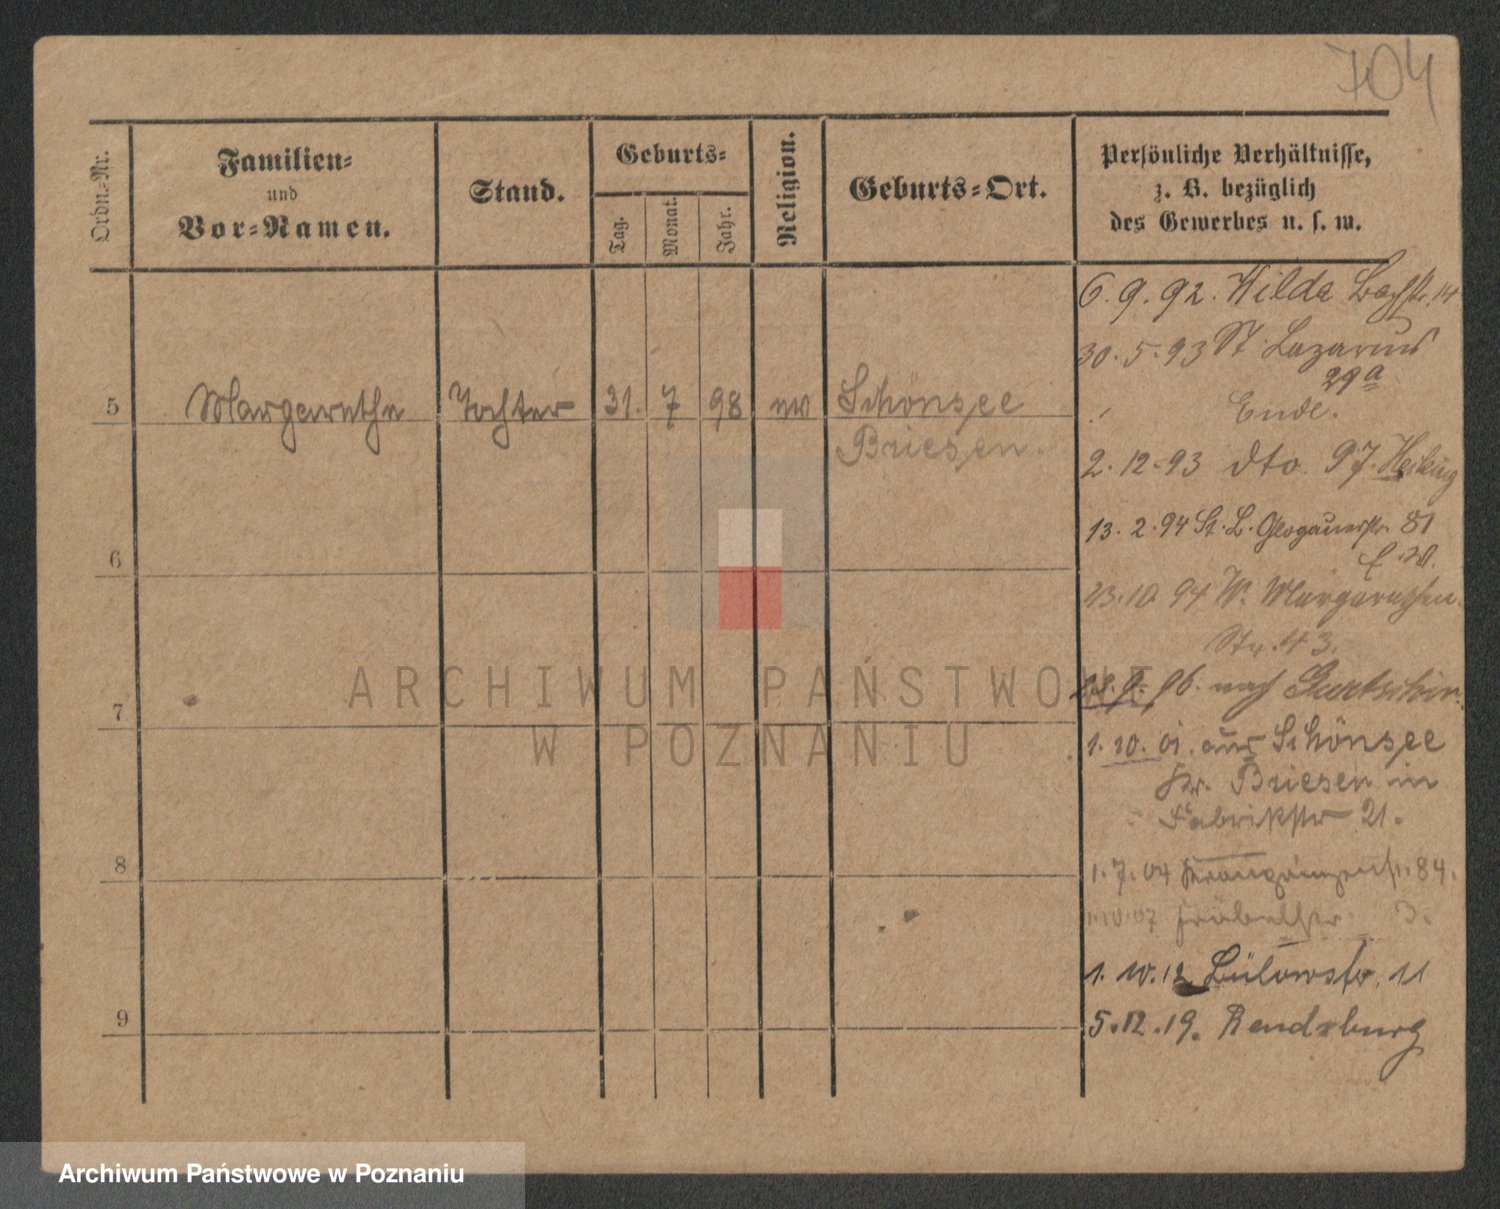 704
Ordn.-Nr.
Familien-
und
Vor-Namen.
Stand.
Geburts-
Tag.
Monat.
Jahr.
Religion.
Geburts-Ort.
Persönliche Verhältnisse,
z. B. bezüglich
des Gewerbes u. s. w.
6. 9. 92. Wilda Bachstr. 14
30. 5. 93 St Lazarus
29a
Ende.
5 Margarethe Tochter 31. 7 98 Schönsee
Briesen.
2. 12. 93 dto 97.
13. 2. 94 St. L. Glogauerstr. 81
6
23. 10. 94 W. Margarethen
Str. 43.
9. 96. nach Gurtschin.
7
1. 10. 01. aus Schönsee
Kr. Briesen in
Fabrikstr 21.
8
1. 7. 04 84.
1. 10. 07 Fröbelstr. 3.
1. 10. 12 Bülowstr. 11
9
5. 12. 19. Rendsburg
ARCHIWUM PAŃSTWOWE
W POZNANIU
Archiwum Państwowe w Poznaniu